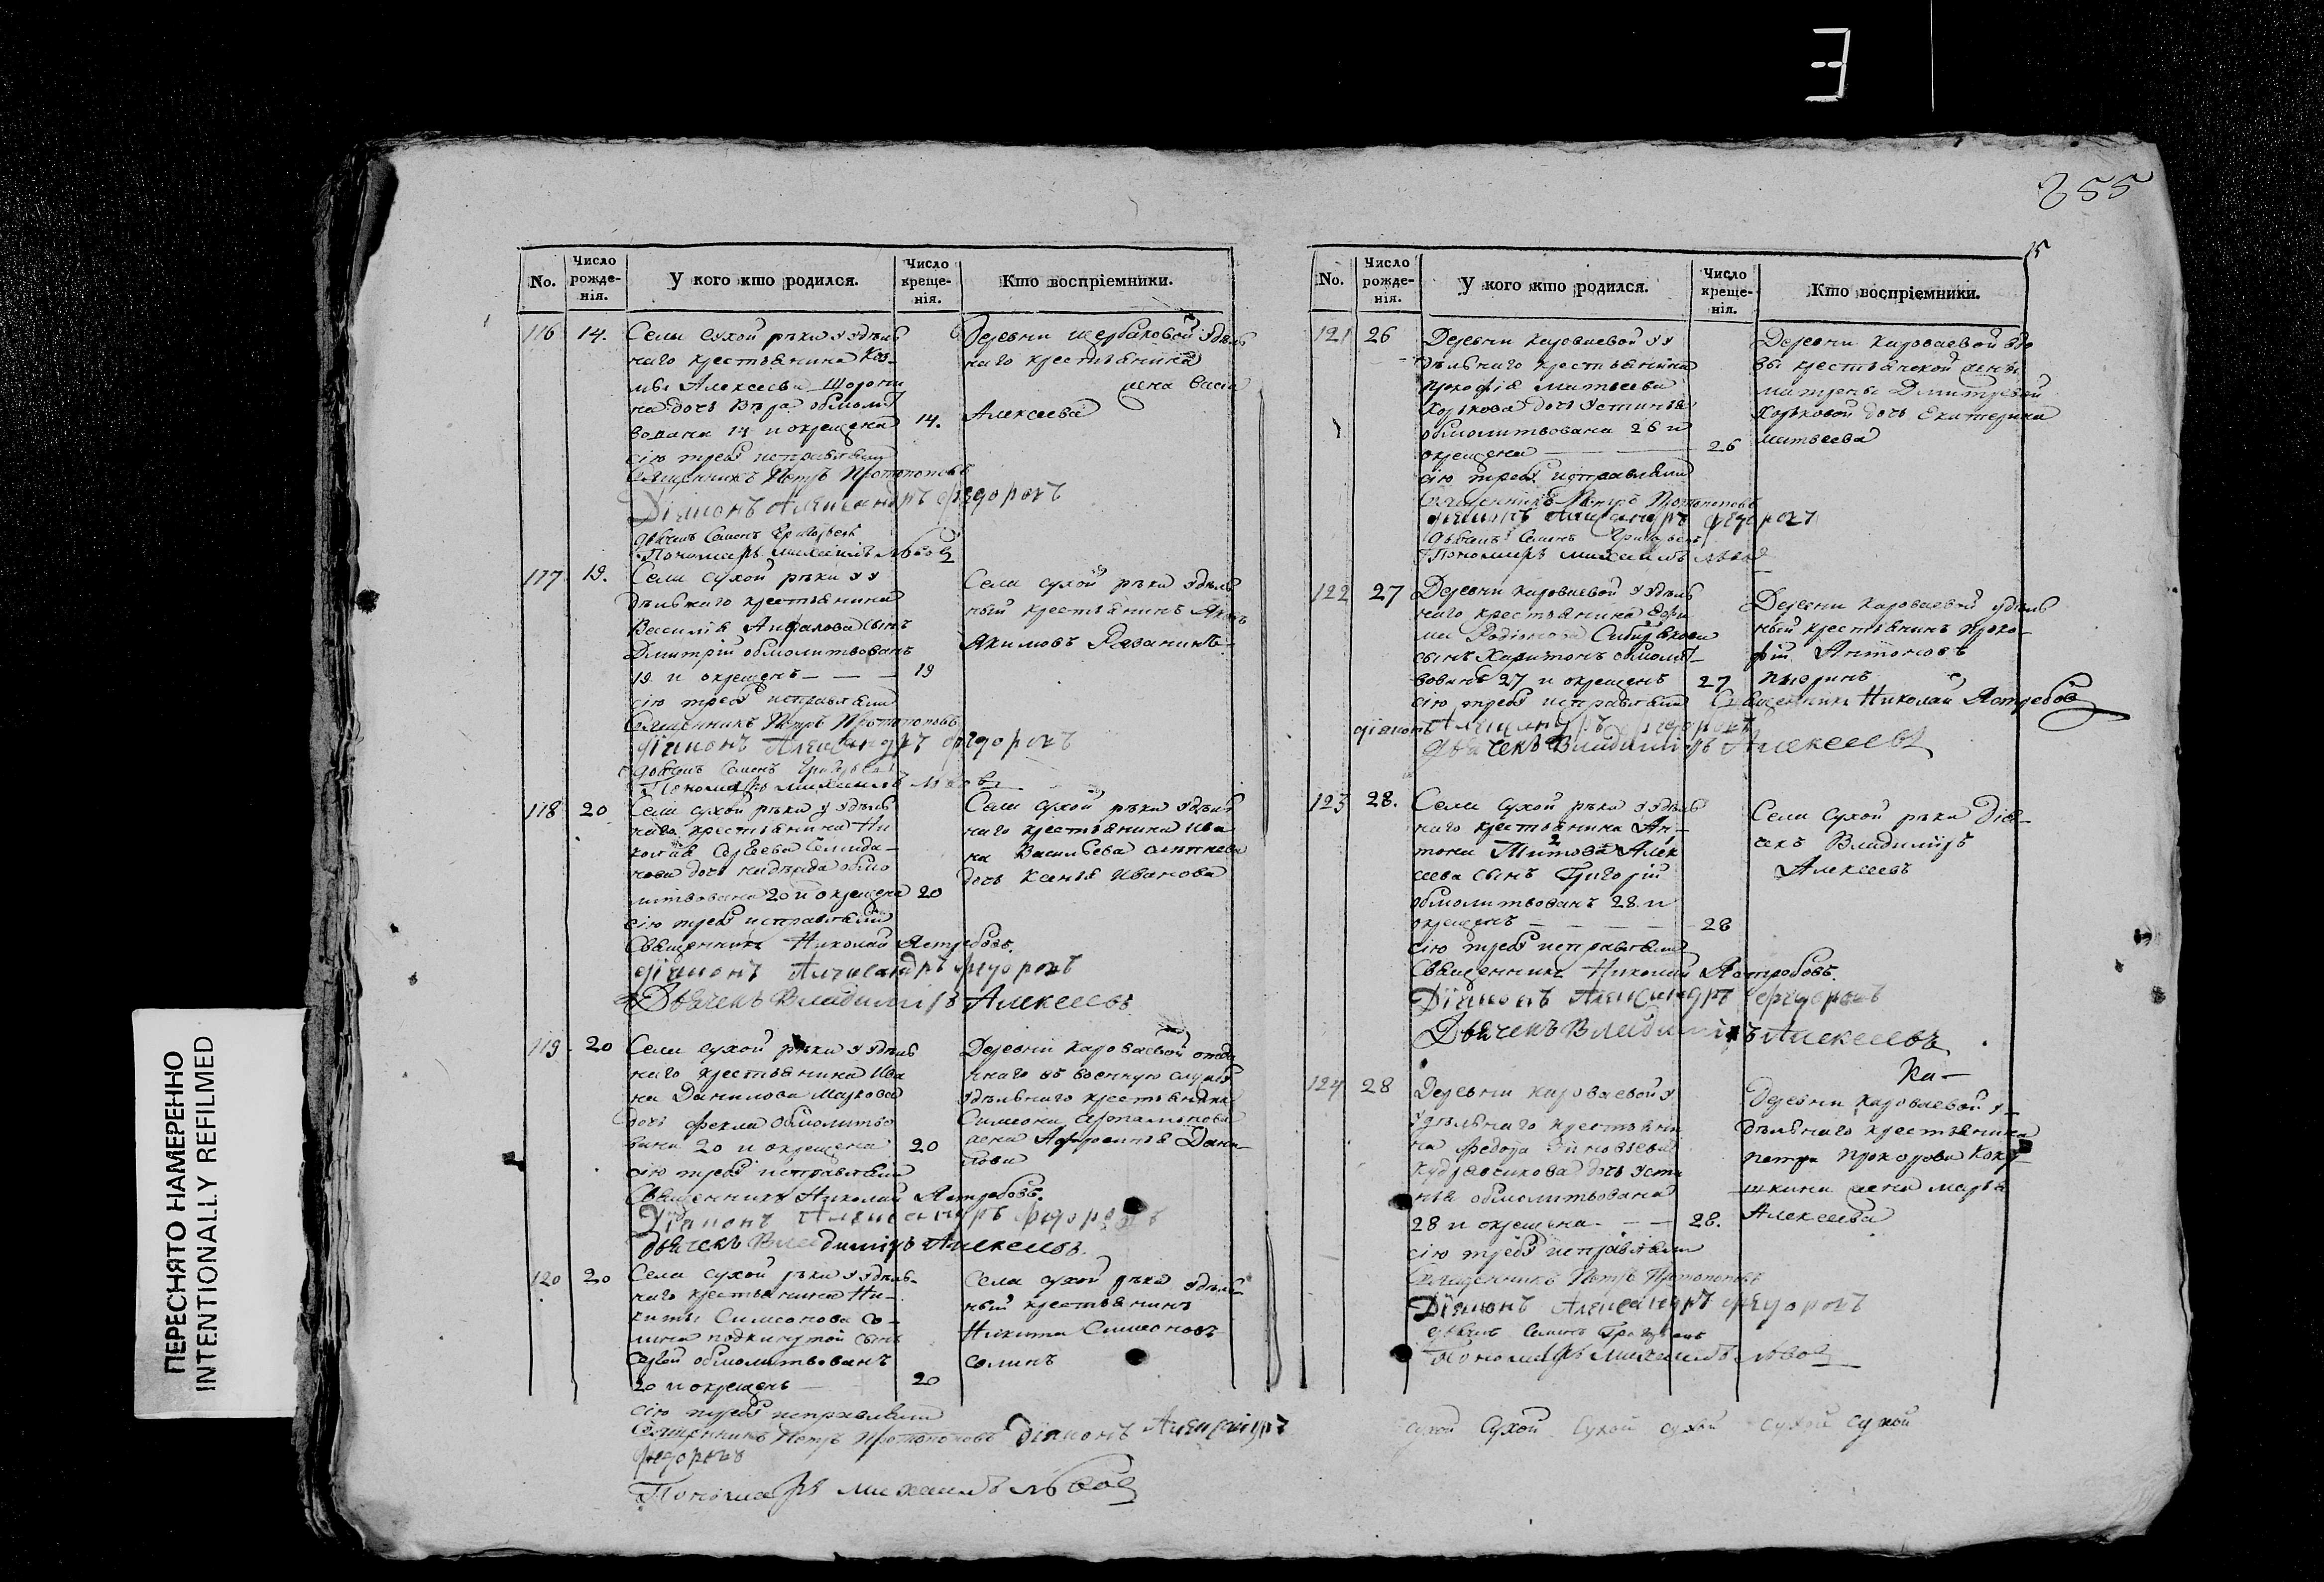 ПЕРЕСНЯТО НАМЕРЕННО
INTENTIONALLY REFILMED
255
15
No.
Число рожде-нія.
У кого кто родился.
Число креще-нія.
Кто воспріемники.
116 14. Села сухой рѣки у удѣль
наго крестьянина Коз-
мы Алексеева
на дочь Вѣра обмолит
вована 14 и окрещена 14.
сію требу исправляли
Священникъ Петръ Протопоповъ
Діаконъ Александръ Федоровъ
дьячекъ Семенъ Григорьевъ
Пономарь Михаилъ Львовъ
Деревни Щербаковой удѣль
наго крестьянина
жена Васса
Алексеева
117 19. Села сухой рѣки у у
дѣльнаго крестьянина
Василія сынъ
Дмитрій обмолитвованъ
19 и окрещенъ 19
сію требу исправляли
Священникъ Петръ Протопоповъ
діаконъ Александръ Федоровъ
дьячекъ Семенъ Григорьевъ
Пономарь Михаилъ Львовъ
Села сухой рѣки удѣль
ный крестьянинъ Яковъ
Якимовъ
118 20 Села сухой рѣки у удѣль
наго крестьянина Ни
колая Сергеева
дочь надѣжда обмо
литвована 20 и окрещена 20
сію требу исправляли
Священникъ Николай Ястребовъ.
діаконъ Александръ Федоровъ
Дьячекъ Владиміръ Алексеевъ
Села сухой рѣки удѣль
наго крестьянина Ива
на Васильева
дочь Ксенья Иванова
119 20 Села сухой рѣки у удѣль
наго крестьянина Ива
на Данилова Маркова
дочь Фекла обмолитво
вана 20 и окрещена 20
сію требу исправляли
Священникъ Николай Ястребовъ.
Діаконъ Александръ Федоровъ
Дьячекъ Владиміръ Алексеевъ
Деревни Короваевой отда
ннаго въ военную службу
удѣльнаго крестьянина
Симеона
жена Афросинья Дани-
лова
120 20 Села сухой рѣки у удѣль-
наго крестьянина Ни-
киты Симеонова Со-
лина подкинутой сынъ
Сергей обмолитвованъ
20 и окрещенъ 20
сію требу исправляли
Священникъ Петръ Протопоповъ Діаконъ Александръ
Федоровъ
Пономарь Михаилъ Львовъ
Села сухой рѣки удѣль
ный крестьянинъ
Никита Симеоновъ
Солинъ
No.
Число рожде-нія.
У кого кто родился.
Число креще-нія.
Кто воспріемники.
121 26 Деревни Короваевой у у
дѣльнаго крестьянина
Прокофія Матвеева
Хорькова дочь Устинья
обмолитвована 26 и
окрещена 26
сію требу исправляли
Священникъ Петръ Протопоповъ
діаконъ Александръ Федоровъ
дьячекъ Семенъ Григорьевъ
Пономарь Михаилъ Львовъ
Деревни Короваевой вдо
вы крестьянской жены
Матрены Дмитревой
Хорьковой дочь Екатерина
Матвеева
122 27 Деревни Короваевой у удѣль
наго крестьянина Ефи
ма Родіонова Сибирякова
сынъ Харитонъ обмолит-
вованъ 27 и окрещенъ 27
сію требу исправляли Священникъ Николай Ястребовъ
діаконъ Александръ Федоровъ
Дьячекъ Владиміръ Алексеевъ
Деревни Короваевой удѣль
ный крестьянинъ Проко-
фій Антоновъ
123 28. Села сухой рѣки у удѣль
наго крестьянина Ан-
тона Титова Алек
сеева сынъ Григорій
обмолитвованъ 28 и
окрещенъ 28
сію требу исправляли
Священникъ Николай Ястребовъ.
Діаконъ Александръ Федоровъ
Дьячекъ Владиміръ Алексеевъ
Села сухой рѣки Дья-
чекъ Владиміръ
Алексеевъ
Ка-
124 28 Деревни Короваевой у
удѣльнаго крестьяни
на Федора Зиновьева
Кудрявсикова дочь Усти
нья обмолитвована
28 и окрещена 28.
сію требу исправляли
Священникъ Петръ Протопоповъ
Діаконъ Александръ Федоровъ
дьячекъ Семенъ Григорьевъ
Пономарь Михаилъ Львовъ
Деревни Короваевой у-
дѣльнаго крестьянина
Петра Прохорова Коку-
шкина жена Марья
Алексеева
сухой Сухой Сухой сухой сухой сухой